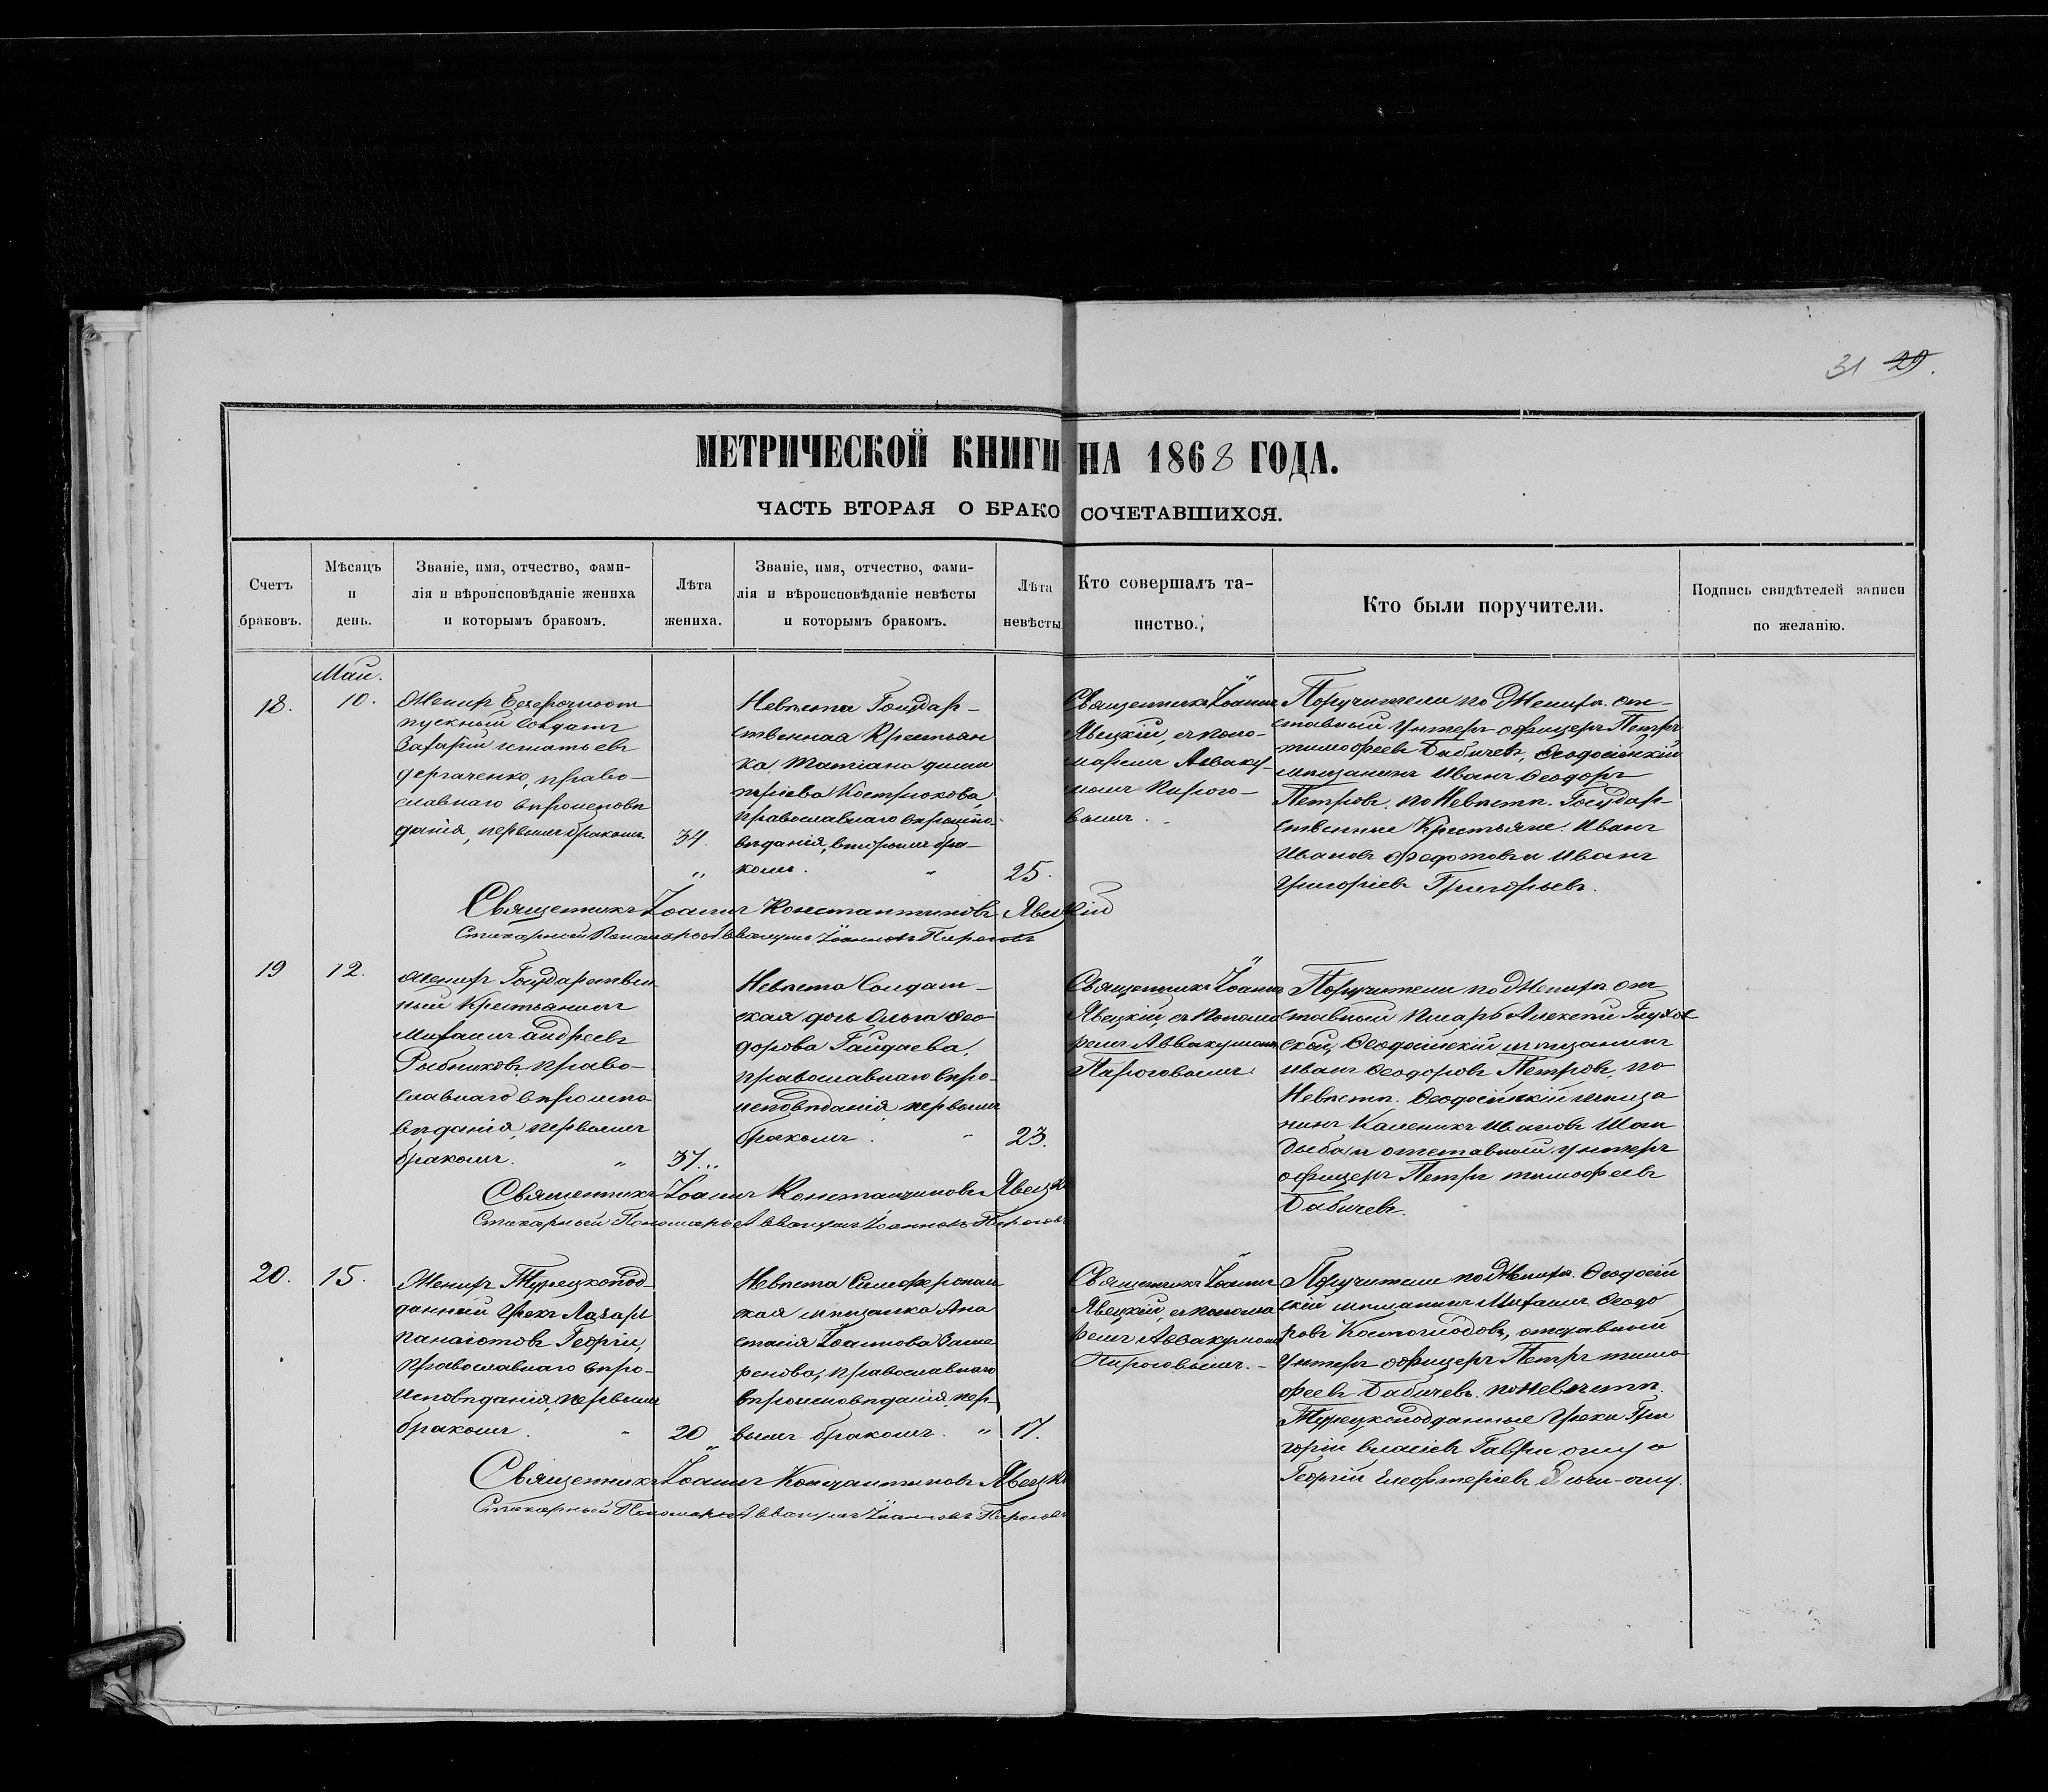 31 29.
МЕТРИЧЕСКОЙ КНИГИ НА 1868 ГОДА.
ЧАСТЬ ВТОРАЯ О БРАКОСОЧЕТАВШИХСЯ.
Счетъ
браковъ.
Мѣсяцъ
и
день.
Званіе, имя, отчество, фами-
лія и вѣроисповѣданіе жениха
и которымъ бракомъ.
Лѣта
жениха.
Званіе, имя, отчество, фами-
лія и вѣроисповѣданіе невѣсты
и которымъ бракомъ.
Лѣта
невѣсты
Кто совершалъ та-
инство.
Кто были поручители.
Подпись свидѣтелей записи
по желанію.
Май.
18.
10.
Женихъ безсрочноот
пускный Солдатъ
Захарій игнатьевъ
дергаченко, право-
славнаго вѣроисповѣ
данія, первымъ бракомъ.
34.
Невѣста Государ-
ственная Крестьян
ка, Татіана дими
тріева Кострюкова,
православнаго вѣроиспо-
вѣданія, вторымъ бра-
комъ.
25.
Священникъ Іоаннъ
Явецкій, съ поно-
маремъ Авваку-
момъ Пирого-
вымъ.
Поручители по Женихѣ. от-
ставный Унтеръ офицеръ Петръ
тимофеевъ Бабичевъ, Ѳеодосійскій
мѣщанинъ Иванъ Ѳеодоръ
Петровъ. по Невѣстѣ. Государ-
ственные Крестьяне. Иванъ
Ивановъ Федотовъ и Иванъ
Григоріевъ Григорьевъ.
Священникъ Іоаннъ Константиновъ Явецкій
Стихарный Пономарь Аввакумъ Іоанновъ Пироговъ
19
12.
Женихъ Государствен-
ный Крестьянинъ
Михаилъ андреевъ
Рыбниковъ, право-
славнаго вѣроиспо
вѣданія, первымъ
бракомъ.
37.
Невѣста Солдат-
ская дочь Ольга Ѳео
дорова Гайдаева,
православнаго вѣро-
исповѣданія, первымъ
бракомъ.
23.
Священникъ Іоаннъ
Явецкій, съ Понома
ремъ Аввакумомъ
Пироговымъ.
Поручители по Женихѣ от
ставный Писарь Алексѣй
Ѳеодосійскій мѣщанинъ
иванъ Ѳеодоровъ Петровъ, по
Невѣстѣ. Ѳеодосійскій мѣща
нинъ Каленикъ Ивановъ Шан
дыба и отставный унтеръ
офицеръ Петръ тимофеевъ
Бабичевъ.
Священникъ Іоаннъ Константиновъ Явецкі
Стихарный Пономарь Аввакумъ Іоанновъ Пироговъ
20.
15.
Женихъ Турецкопод-
данный Грекъ Лазарь
панаіотовъ Георгіи,
Православнаго вѣро-
исповѣданія, первымъ
бракомъ.
20
Невѣста Симферополь
ская мѣщанка Ана
стасія Іоаннова
православнаго
вѣроисповѣданія, пер-
вымъ бракомъ.
17.
Священникъ Іоаннъ
Явецкій, съ понома
ремъ Аввакумомъ
Пироговымъ.-
Поручители по Женихѣ. Ѳеодосій
скій мѣщанинъ Михаилъ Ѳеодо
ровъ отставный
Унтеръ офицеръ Петръ тимо
феевъ Бабичевъ. по невѣстѣ.
Турецкоподданные Греки Гри
горій власіевъ Гаври оглу и
Георгій Елефтеріевъ
Священникъ Іоаннъ Константиновъ Явецкі
Стихарный Пономарь Аввакумъ Іоанновъ Пироговъ